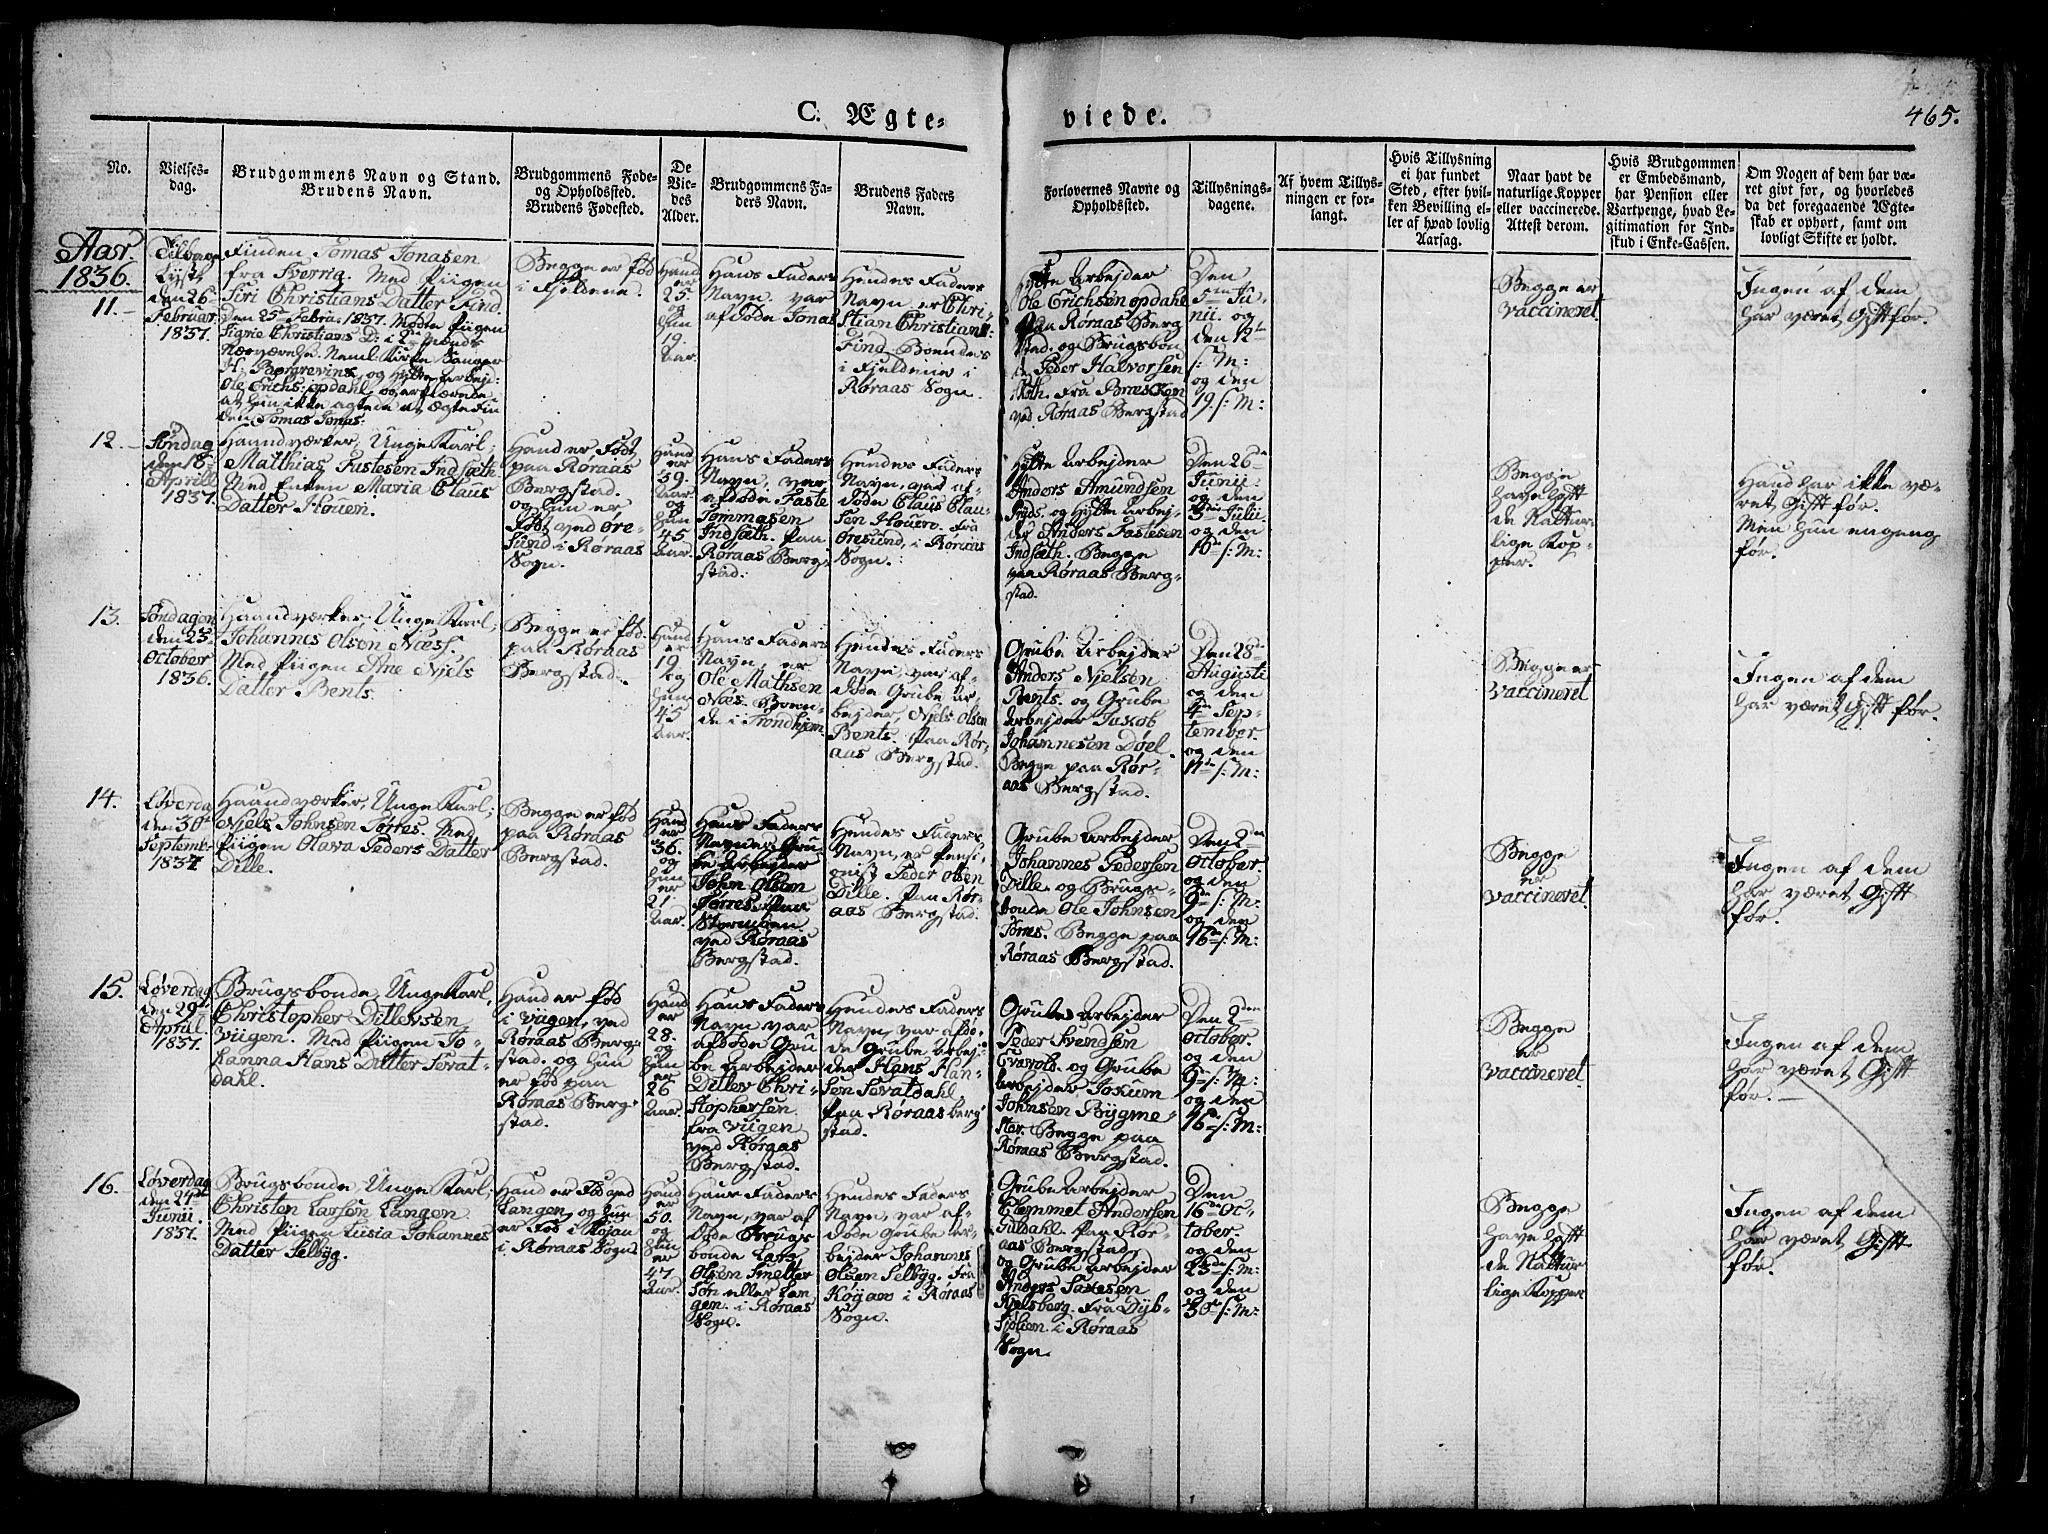 C. Ægte-
viede.
465.
No.
Vielses-
dag.
Brudgommens Navn og Stand.
Brudens Navn.
Brudgommens Føde-
og Opholdssted.
Brudens Fødested.
De
Vie-
des
Alder.
Brudgommens Fa-
ders Navn.
Brudens Faders
Navn.
Forlovernes Navne og
Opholdssted.
Tillysnings-
dagene.
Af hvem Tillys-
ningen er for-
langt.
Hvis Tillysning
ei har fundet
Sted, efter hvil-
ken Bevilling el-
ler af hvad lovlig
Aarsag.
Naar havt de
naturlige Kopper
eller vaccinerede.
Attest derom.
Hvis Brudgommen
er Embedsmand,
har Pension eller
Vartpenge, hvad Le-
gitimation for Ind-
skud i Enke-Cassen.
Om Nogen af dem har væ-
ret givt før, og hvorledes
da det foregaaende Ægte-
skab er ophørt, samt om
lovligt Skifte er holdt.
Aar.
1836.
11.
Tilbage
Lyste
den 26-
Februar
1837.
Finden Tomas Jonasen
fra Sverrig. Med Piigen
Siri Christians Datter Find.
Den 25de Febru: 1837. Mødte Piigen
Signe Christians D: i 2de Mænds
Nærværelse. Naml. Kirke Sanger
H: Borgrevink, og Hytte Arbeid:
Ole Erichs: opdahl, og erklærede
at Hun ikke agtede at Ægte Fin
den Tomas Jonas:
Begge er fød
i Fjeldene.
Hand
er
25.
og
Hun
19.
Aar.
Hans Faders
Navn. var
afdøde Jonas
Hendes Faders
Navn, er Chri-
stian Christians:
Find, Boendes
i Fjeldene i
Røraas Sogn.
Hytte Arbejder
Ole Erichsen opdahl
paa Røraas Berg
stad. og Brugsbon
de Peder Halvorsen
Noth. fra Bræcken
ved Røraas Bergstad
Den
5te Ju-
nii. og
den 12te
s: M:
og den
19. s: M:
Begge er
vaccineret
Ingen af dem
har været Gift før.
12.
Søndag
den 16
Aprill
1837.
Haandværker, Unge Karl;
Matthias Fastesen Indsæth
Med Enken Maria Claus
Datter Houen.
Hand er Født
paa Røraas
Bergstad.
og Hun er
født ved Øre-
sund i Røraas
Sogn.
Hand
er
59.
Aar
og
Hun
45
Aar.
Hans Faders
Navn, var
afdøde Faste
Tommasen
Indsæth. paa
Røraas Berg-
stad.
Hendes Faders
Navn, var af-
døde Claus Clau-
sen Houen. fra
Øresund, i Røraas
Sogn.
Hytte Arbejder
Anders Amundsen
Ryds. og Hytte Arbej-
der Anders Fastesen
Indsæth. Begge
paa Røraas Berg-
stad.
Den 26de
Junii
og den
3die Julii.
og den
10de s: M:
Begge
have haft
de Natur-
lige Kop-
per.
Hand har ikke væ-
ret Gift før.
Men Hun engang
før.
13.
Søndagen
den 23de
October
1836.
Haandværker, Unge Karl;
Johannes Olsen Næss.
Med Piigen Ane Njels
Datter Bents.
Begge er fød.
paa Røraas
Bergstad.
Hand
er
19.
og
Hun
45
Aar.
Hans Faders
Navn, er
Ole Mathsen
Næs. Boen-
de i Trondhjem
Hendes Faders
Navn, var af-
døde Grube Ar-
bejder, Njels Olsen
Bents. paa Rør-
aas Bergstad.
Grube Arbejder
Anders Njelsen
Bents. og Grube
Arbejder Jakob
Johannesen Døel
Begge paa Rør-
aas Bergstad.
Den 28de
Augusti
og den
4de Sep-
tember.
og den
11te s: M:
Begge er
vaccineret
Ingen af dem
har været Gift før.
14.
Løverdag
den 30te
Septemb.
1837
Haandværker, Unge Karl;
Njels Johnsen Torres. Med
Piigen Olava Peders Datter
Dille.
Begge er fød
paa Røraas
Bergstad.
Hand
er
36.
og
Hun
er
21.
Aar.
Hans Faders
Navn er Gru-
be Arbejder
John Olsen
Torres. paa
Stormoen
ved Røraas
Bergstad.
Hendes Faders
Navn, er Pensi-
onist Peder Olsen
Dille. Paa Rør-
aas Bergstad.
Grube Arbejder
Johannes Pedersen
Dille. og Brugs-
bonde Ole Johnsen
Torres. Begge paa
Røraas Bergstad.
Den 2den
October.
og den
9de s: M:
og den
16de s: M:
Begge
er
vaccineret.
Ingen af dem
har været Gift
før.
15.
Løverdag
den 29de
Aprill.
1837.
Brugsbonde, Unge Karl,
Christopher Ditlevsen
Viigen. Med Piigen Jo-
hanna Hans Datter Tevat-
dahl.
Hand er fød
i Viigen, ved
Røraas Berg-
stad. og Hun
er fød paa
Røraas Berg-
stad.
Hand
er
28.
og
Hun
er
26
Aar.
Hans Faders
Navn var
afdøde Gru
be Arbejder
Ditlev Chri-
stophersen
fra Viigen
ved Røraas
Bergstad.
Hendes Faders
Navn, var afdø-
de Grube Arbej-
der Hans Han-
sen Tevatdahl
paa Røraas berg
stad.
Grube Arbejder
Peder Svendsen
Evavold. og Grube
Arbejder Jokum
Johnsen Bygme-
ster. Begge paa
Røraas Bergstad.
Den 2den
October.
og den
9de s: M:
og den
16de s: M:
Begge
er
vaccineret
Ingen af dem
har været Gift
før.
16.
Løverdag
den 24de
Junii
1837.
Brugsbonde, Unge Karl,
Christen Larsen Langen.
Med Piigen Lusia Johannes
Datter Selbyg.
Hand er Fød ved
Langen, og Hun
er Fød i Kojan
i Røraas Sogn
Hand
er
50.
og
Hun
er
47.
Aar.
Hans Faders
Navn, var af
døde Brugs
bonde Lars
Olsen Smelter
Søn eller Lan
gen. i Røraas
Sogn.
Hendes Faders
Navn, var af-
døde Grube Ar-
bejder Johannes
Olsen Selbyg. fra
Kojan i Røraas
Sogn.
Grube Arbejder
Clemmet Andersen
Guldahl. paa Rør-
aas Bergstad,
og Grube Arbejder
Anders Saxesen
Kjelsberg. fra Dyb-
sjølien i Røraas
Sogn.
Den
16de Oc-
tober.
og den
23de s: M:
og den
30te s: M:
Begge
have haft
de Natur
lige Kopper
Ingen af dem
har været Gift
før.